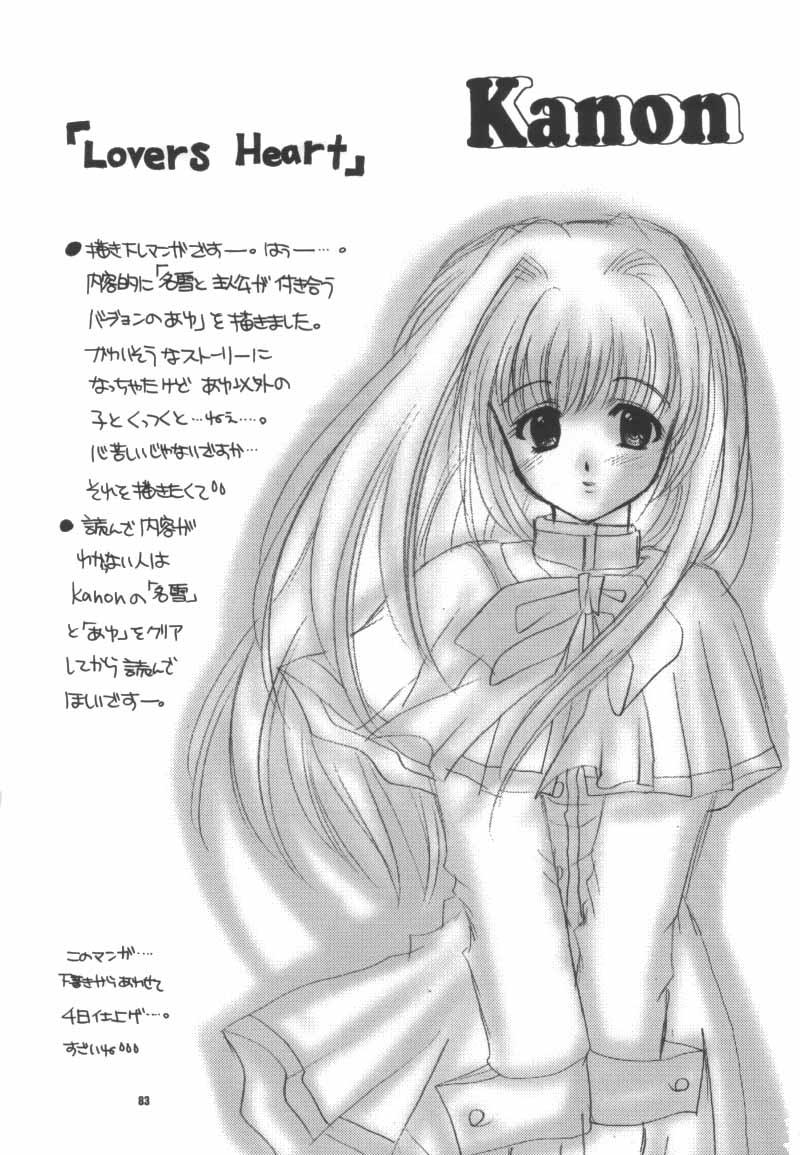 Kanon
「Lovers Heart」
●描き下しマンガですー。はぅー…。
内容的に「名雪と主人公が付き合う
バージョンのあゆ」を描きました。
かわいそうなストーリーに
なっちゃたけど あゆ以外の
子とくっつくと…ねぇ…。
心苦しいじゃないですか…
それを描きたくて。。
●読んで内容が
わかない人は
kanonの「名雪」
と「あゆ」をクリア
してから読んで
ほしいですー。
このマンガ…
下書きからあわせて
4日仕上げ…。
すごいね。。。
83